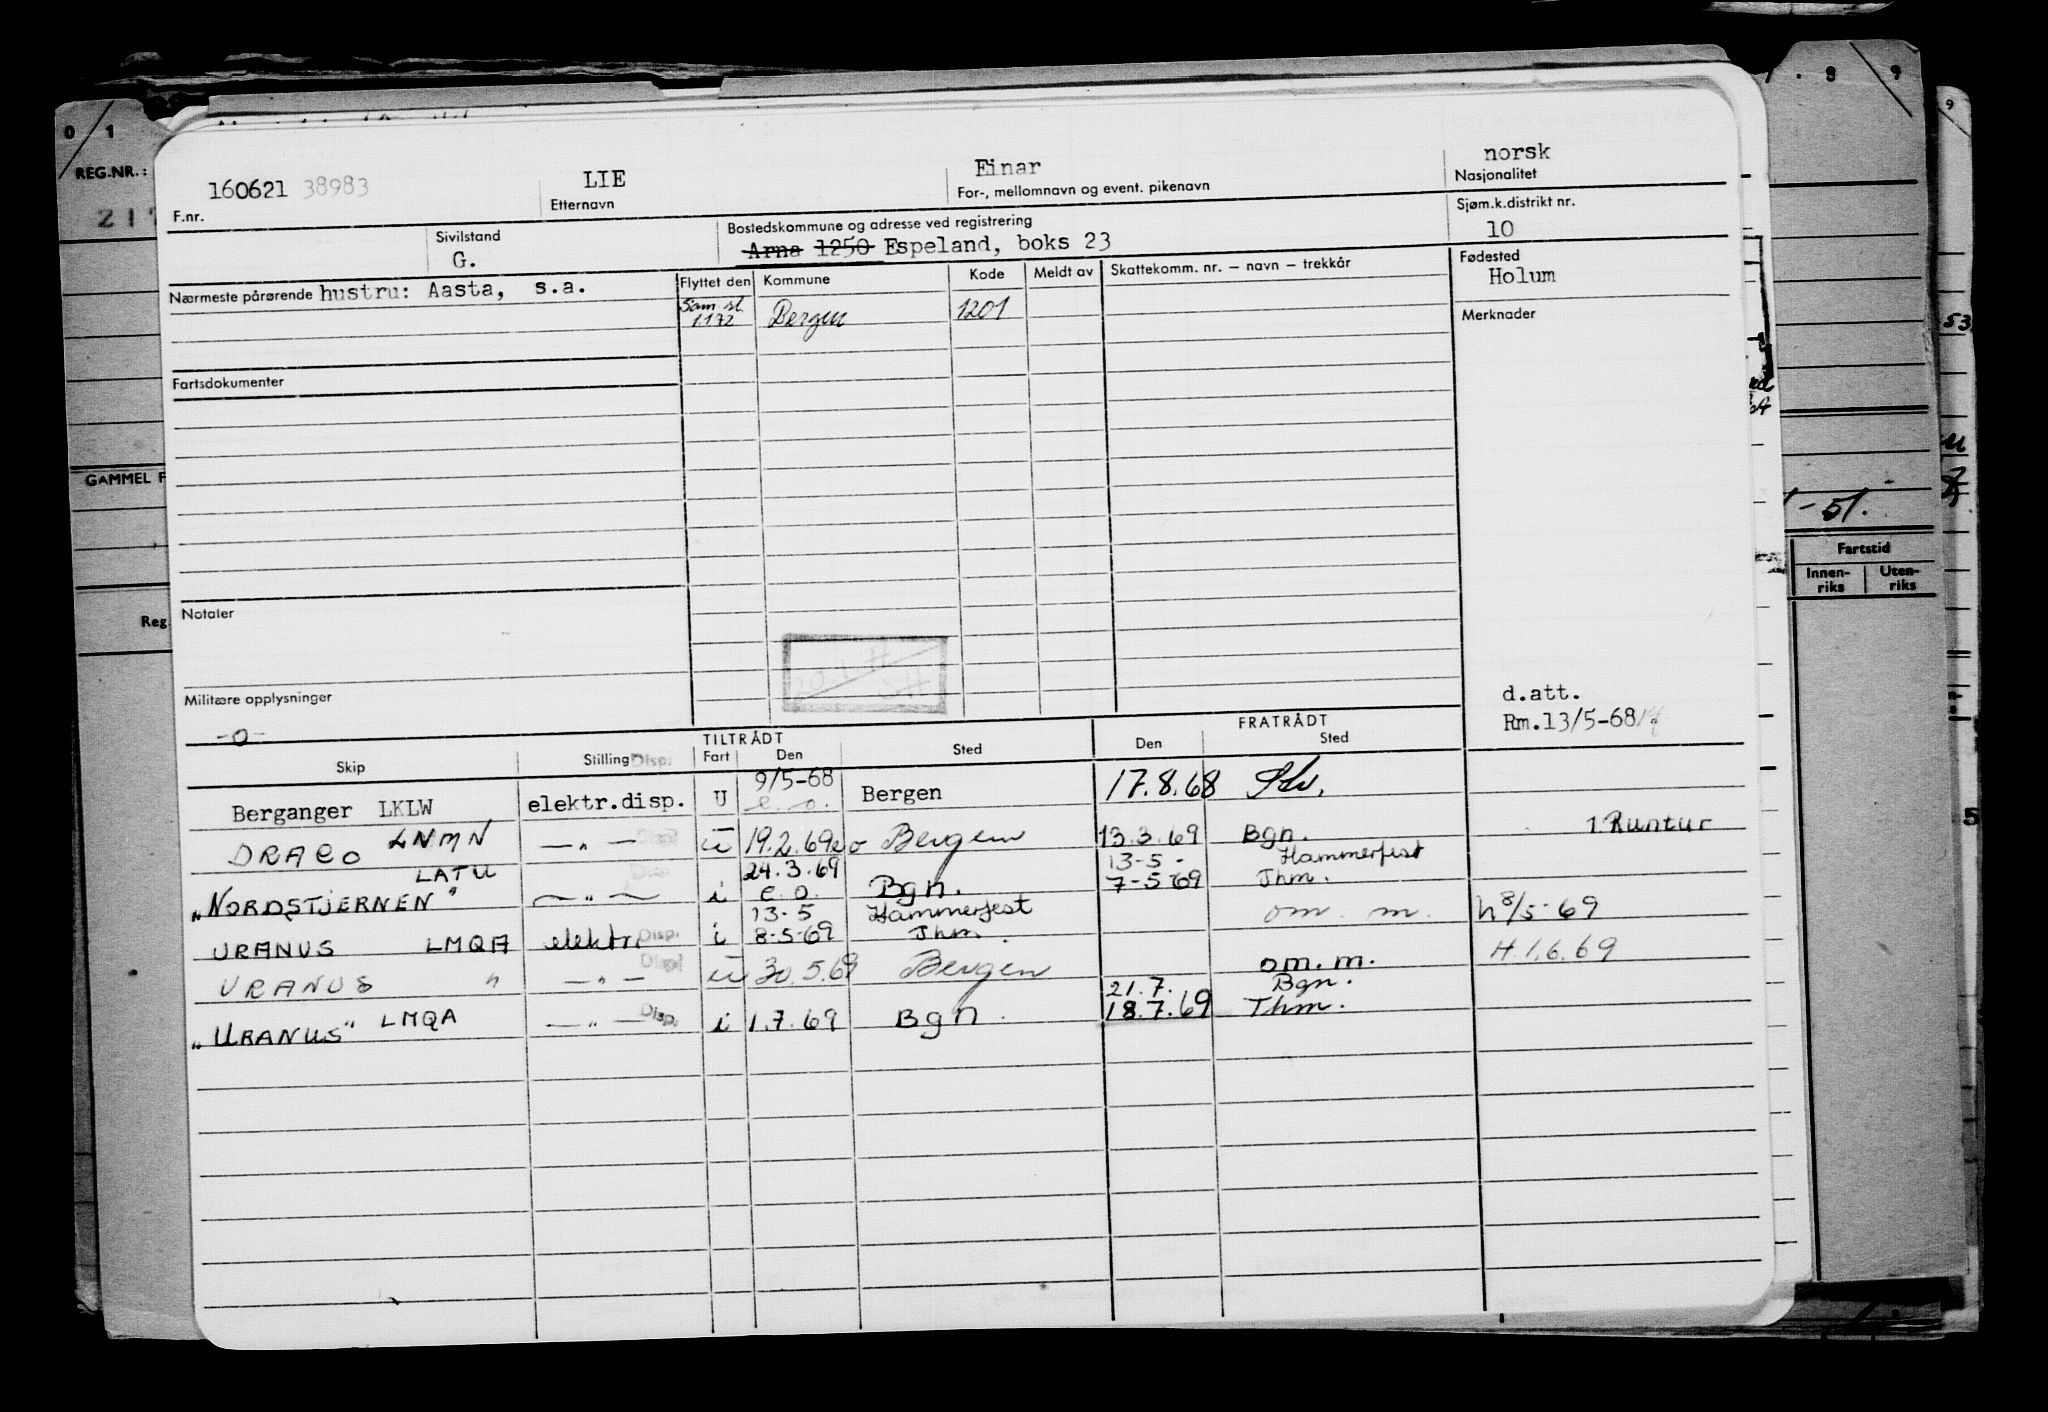 0 1
8 9
9
REG.NR.:
160621 38983
LIE
Einar
norsk
F.nr.
Etternavn
For-, mellomnavn og event. pikenavn
Nasjonalitet
Sivilstand
Bostedskommune og adresse ved registrering
Sjøm.k.distrikt nr.
G.
Arna 1250 Espeland, boks 23
10
Nærmeste pårørende hustru: Aasta, s.a.
Flyttet den Kommune Kode Meldt av Skattekomm. nr. – navn – trekkår
Fødested
Holum
1172 Bergen 1201
Merknader
53
Fartsdokumenter
GAMMEL F
- 51.
Fartstid
Innen-riks Uten-riks
Notater
Reg.
Militære opplysninger
-0-
d.att.
Rm.13/5-68
TILTRÅDT FRATRÅDT
Skip Stilling Disp. Fart Den Sted Den Sted
Berganger LKLW elektr.disp. U 9/5-68 e.o. Bergen 17.8.68
DRACO LNMN — " — Disp. u 19.2.69 eo Bergen 13.3.69 Bgn. 1 Runtur
"NORDSTJERNEN" LATU — " — Disp. i 24.3.69 e.o. Bgn. 13-5- Hammerfest
7-5-69 Thm.
URANUS LMQA elektr. Disp. i 13-5 Hammerfest om. m. h 8/5-69
8-5-69 Thm.
URANUS " — " — Disp. u 30.5.69 Bergen om.m. H.1.6.69
"URANUS" LMQA — " — Disp. i 1.7.69 Bgn. 21.7. Bgn.
18.7.69 Thm.
5